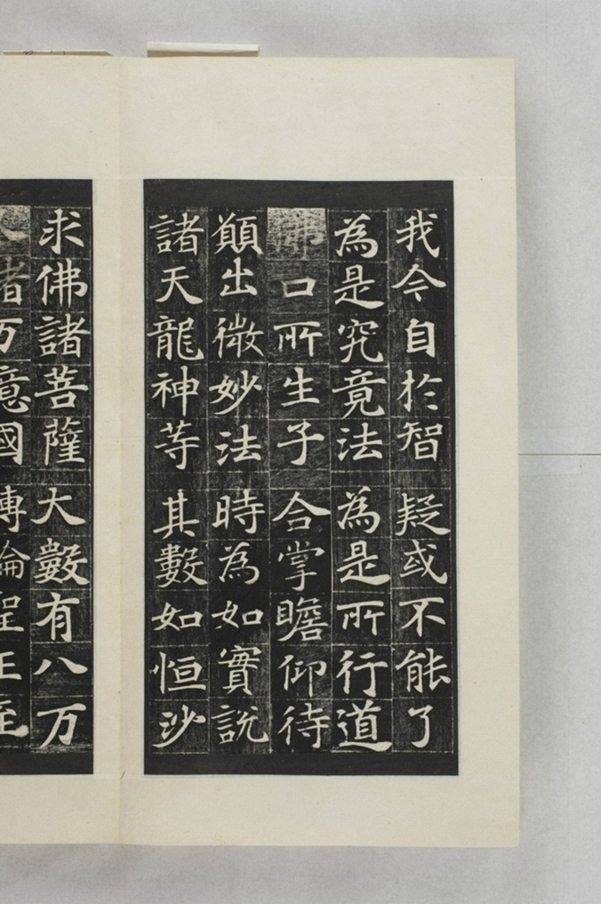 我今自於智 疑或不能了
為是究竟法 為是所行道
佛口所生子 合掌瞻仰待
願出微妙法 時為如實說
諸天龍神等 其數如恒沙
求佛諸菩薩 大數有八万
諸万億國 轉輪聖王至